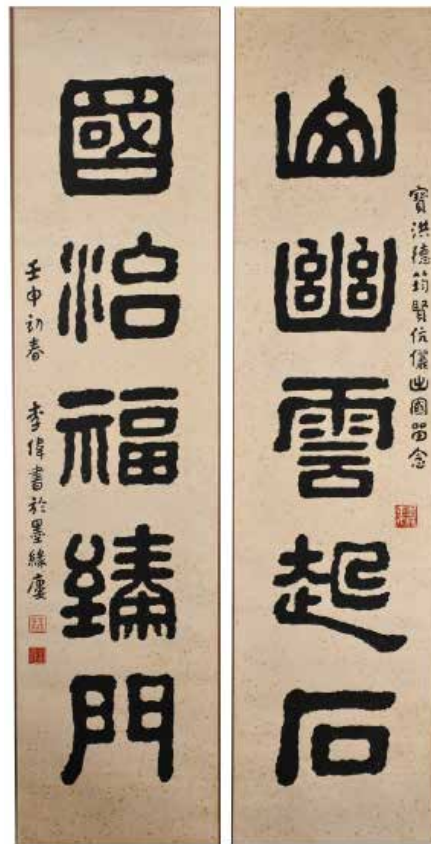 山幽雲起石
寶洪穗筠賢伉儷出國留念
國治福臻門
壬申初春 李偉書於墨緣廔